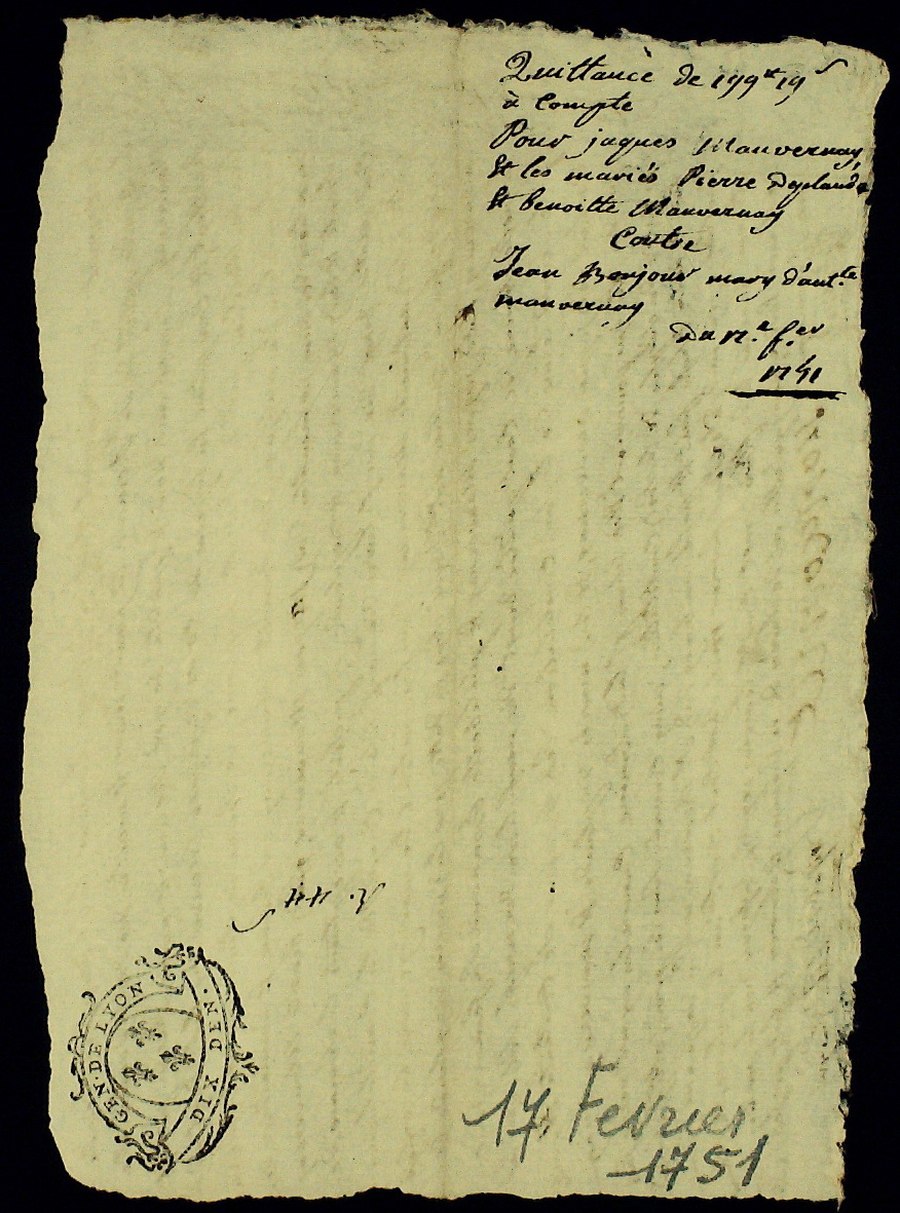 Quittance de 199ᵗᵗ 19ˢ
à Compte
Pour jaques Mauvernay,
Et les mariés Pierre
Et benoitte Mauvernay
Contre
Jean Bonjour mary d'antᵗᵉ
mauvernay
Du 17.ᵉ f.ᵉʳ
1751
GEN · DE LYON
DIX DEN ·
17 Fevrier
1751